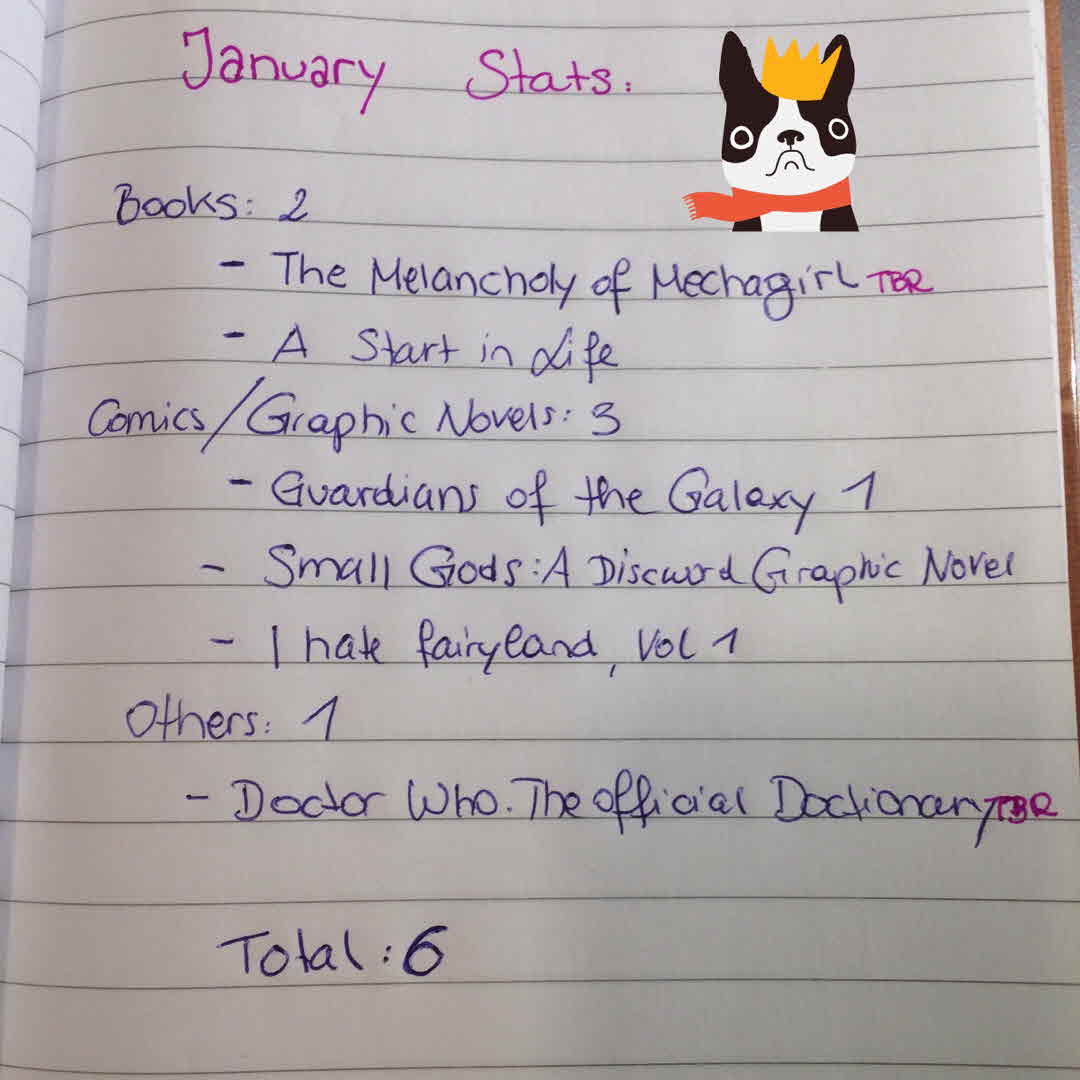 January Stats:
Books: 2
- The Melancholy of Mechagirl TBR
- A Start in Life
Comics/Graphic Novels: 3
- Guardians of the Galaxy 1
- Small Gods: A Discword Graphic Novel
- I hate fairyland, Vol 1
Others: 1
- Doctor Who. The official Doctionary TBR
Total: 6